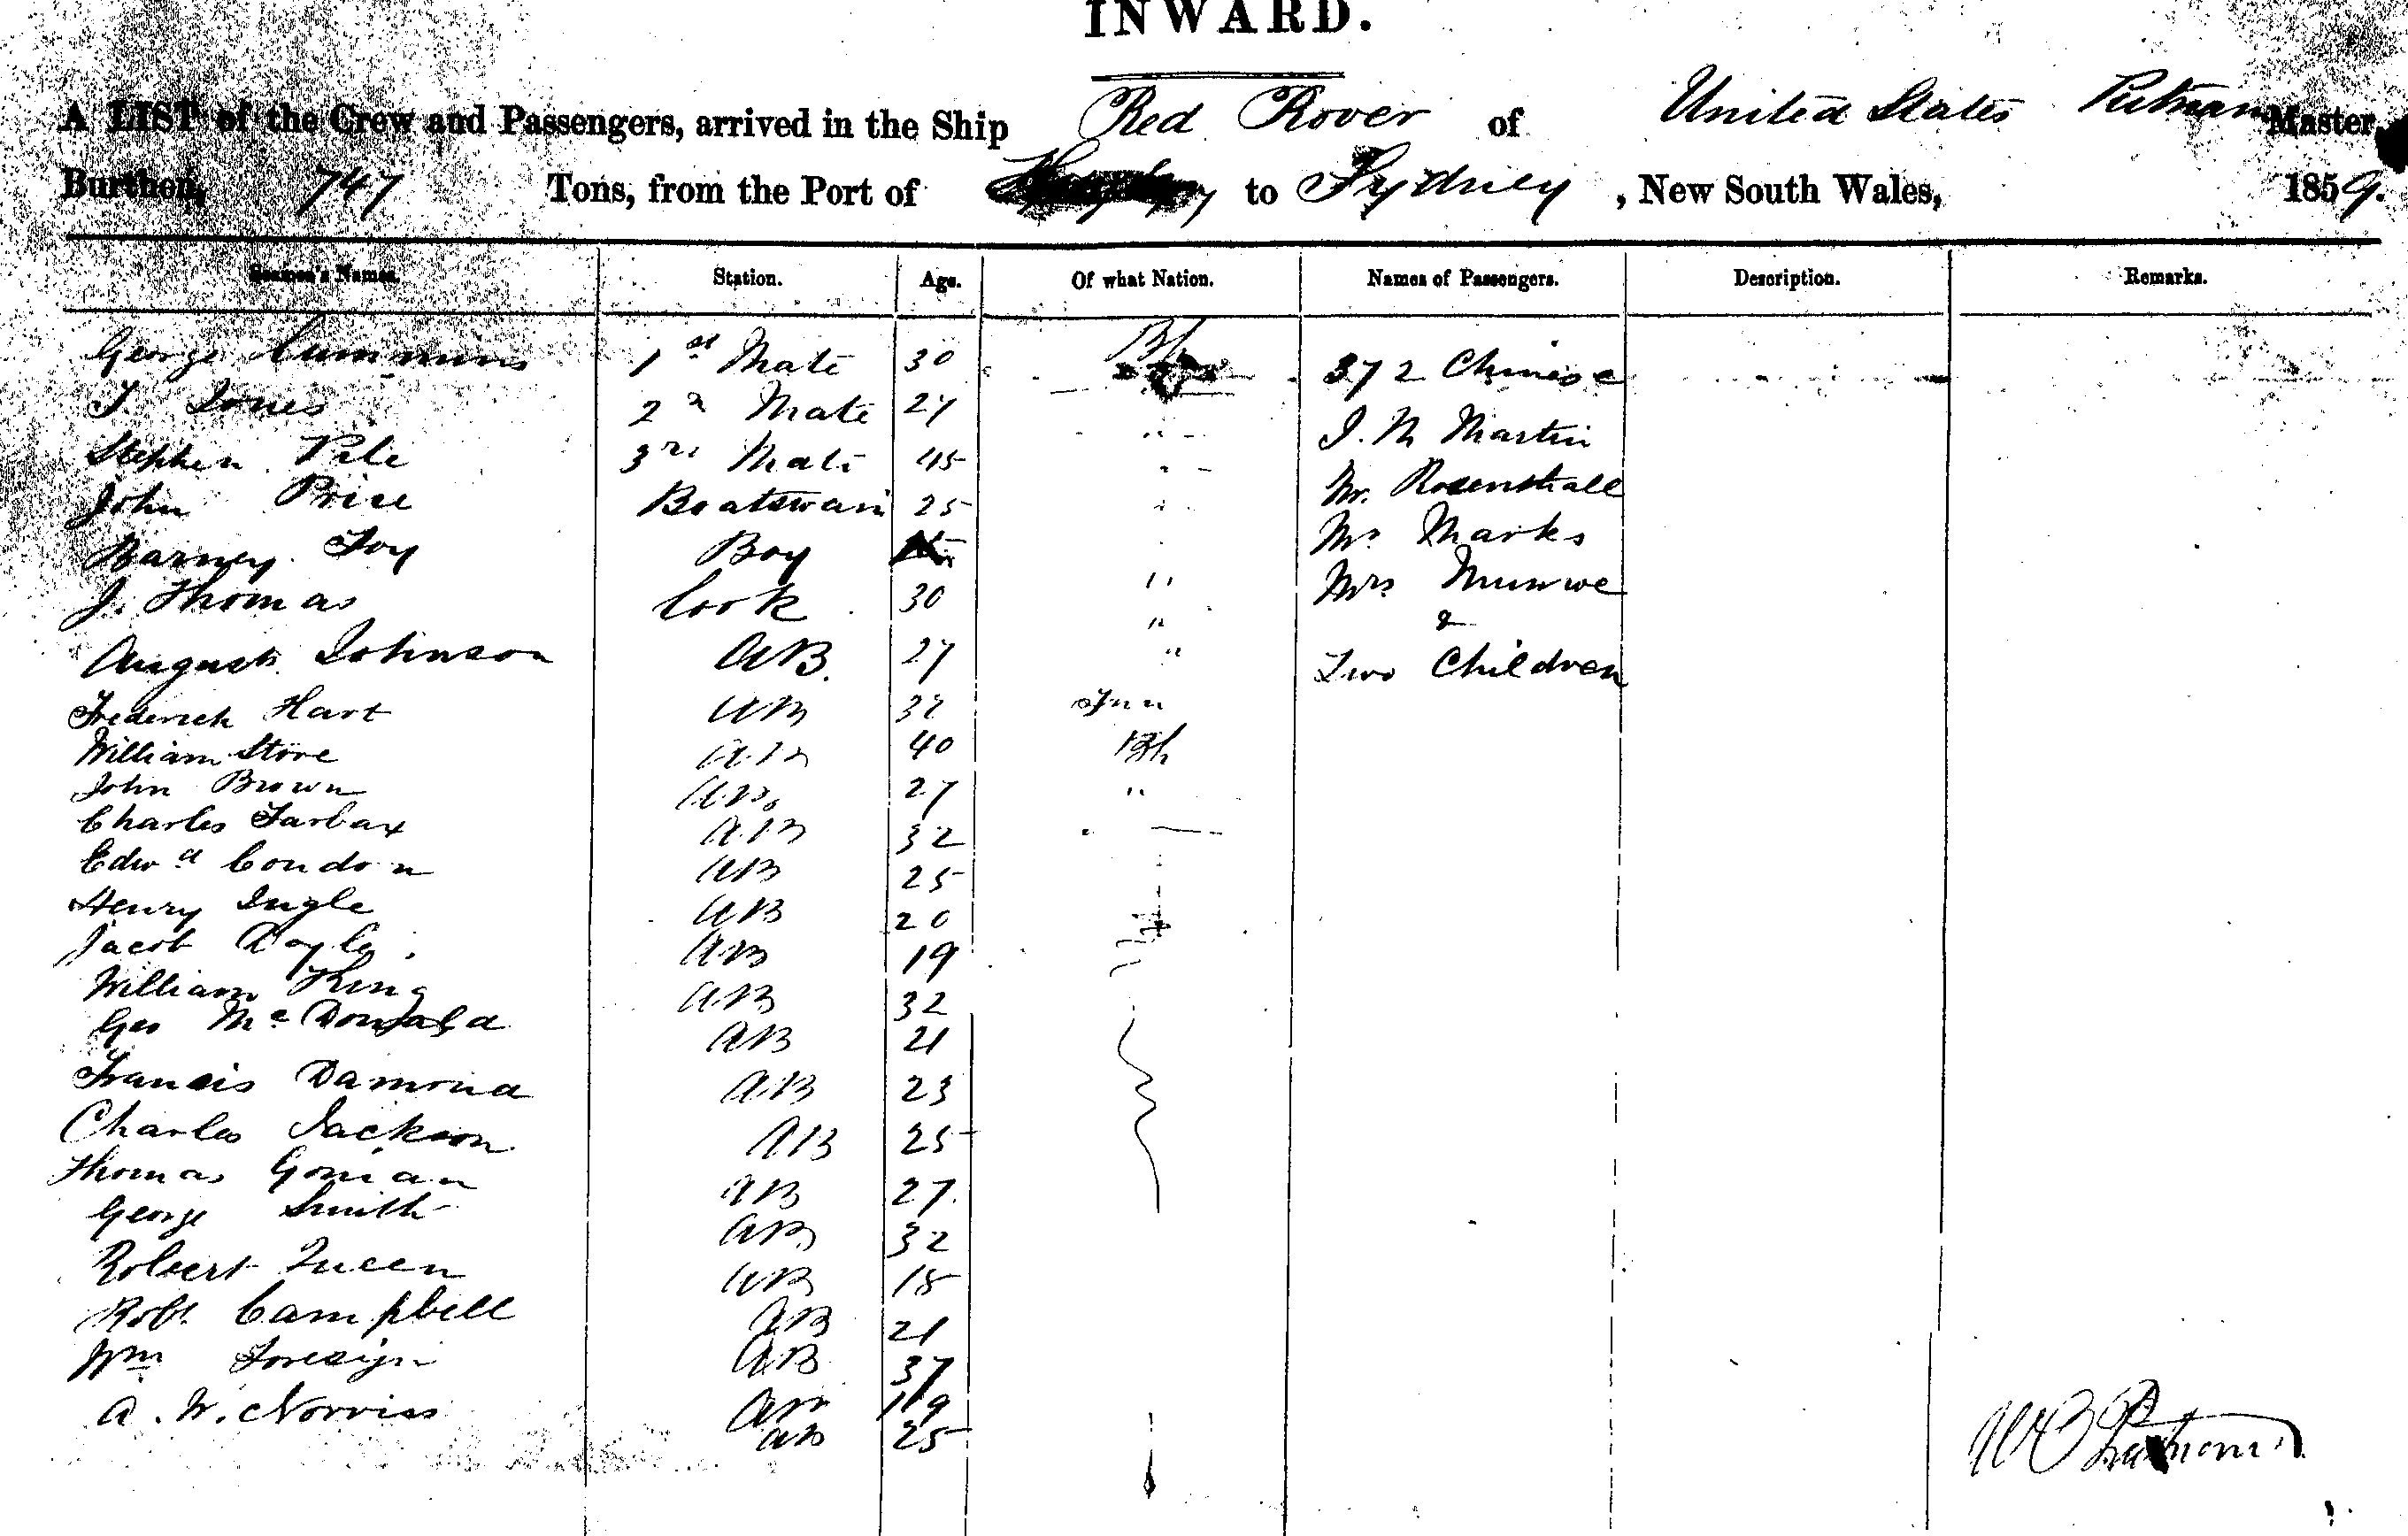 INWARD.
A LIST of the Crew and Passengers, arrived in the Ship Red Rover of United States Putnam Master,
Burthen, 747 Tons, from the Port of to Sydney, New South Wales, 1859.
Seamen's Names. Station. Age. Of what Nation. Names of Passengers. Description. Remarks.
George Cummins 1st Mate 30 372 Chinese
T. Jones 2d Mate 27 " J. M Martin
Stephen 3rd Mate 45 " Mr. Rosenthall
John Price Boatswain 25 " Mr Marks
Barney Foy Boy Mrs Munroe
J. Thomas Cook 30 " &
August Johnson AB. 27 " Two Children
Frederick Hart AB 32
William Stove AB 40 Bh
John Brown AB. 27 "
Charles AB 32
Edwd Condon AB 25
Henry Ingle AB 20
Jacob AB 19
William King AB 32
Geo McDonald AB 21
Francis Damond AB 23
Charles Jackson AB 25
Thomas Gorman AB 27.
George Smith AB 32
Robert Queen AB 18
Robt. Campbell AB 21
Wm Foreign AB 37
A. W. Norriss AB 19
AB 25
Putnam